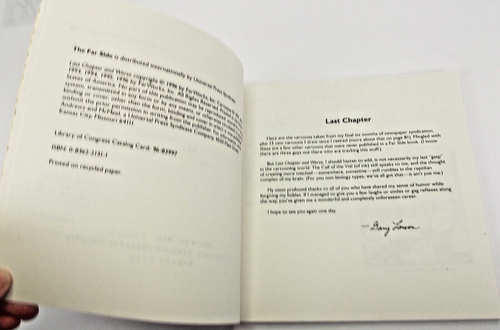 The Far Side is distributed internationally by Universal Press Syndicate.
Last Chapter and Worse copyright © 1996 by FarWorks, Inc. Cartoons copyright ©
1993, 1994, 1995, 1996 by FarWorks, Inc. All Rights Reserved. Printed in the United
States of America. No part of this publication may be reproduced, stored in a retrieval
system, transmitted in any form or by any means
binding or cover, other than the form, binding and cover in which it was
without the prior permission in writing from the publisher. For information
Andrews and McMeel, a Universal Press Syndicate Company, 4520 Main Street,
Kansas City, Missouri 64111.
Library of Congress Catalog Card: 96-83997
ISBN: 0-8362-2131-1
Printed on recycled paper.
Last Chapter
Here are the cartoons taken from my final six months of newspaper syndication,
plus 13 new cartoons I drew since I retired (more about that on page 85). Mingled with
these are a few other cartoons that were never published in a Far Side book. (I know
there are three guys out there who are tracking this stuff.)
But Last Chapter and Worse, I should hasten to add, is not necessarily my last "gasp"
in the cartooning world. The Call of the Vial (of ink) still speaks to me, and the thought
of creating more mischief—somewhere, sometime—still rumbles in the reptilian
complex of my brain. (For you non-biology types, we've all got that—it isn't just me.)
My most profound thanks to all of you who have shared my sense of humor while
forgiving my foibles. If I managed to give you a few laughs or smiles or gag reflexes along
the way, you've given me a wonderful and completely unforeseen career.
I hope to see you again one day.
—Gary Larson